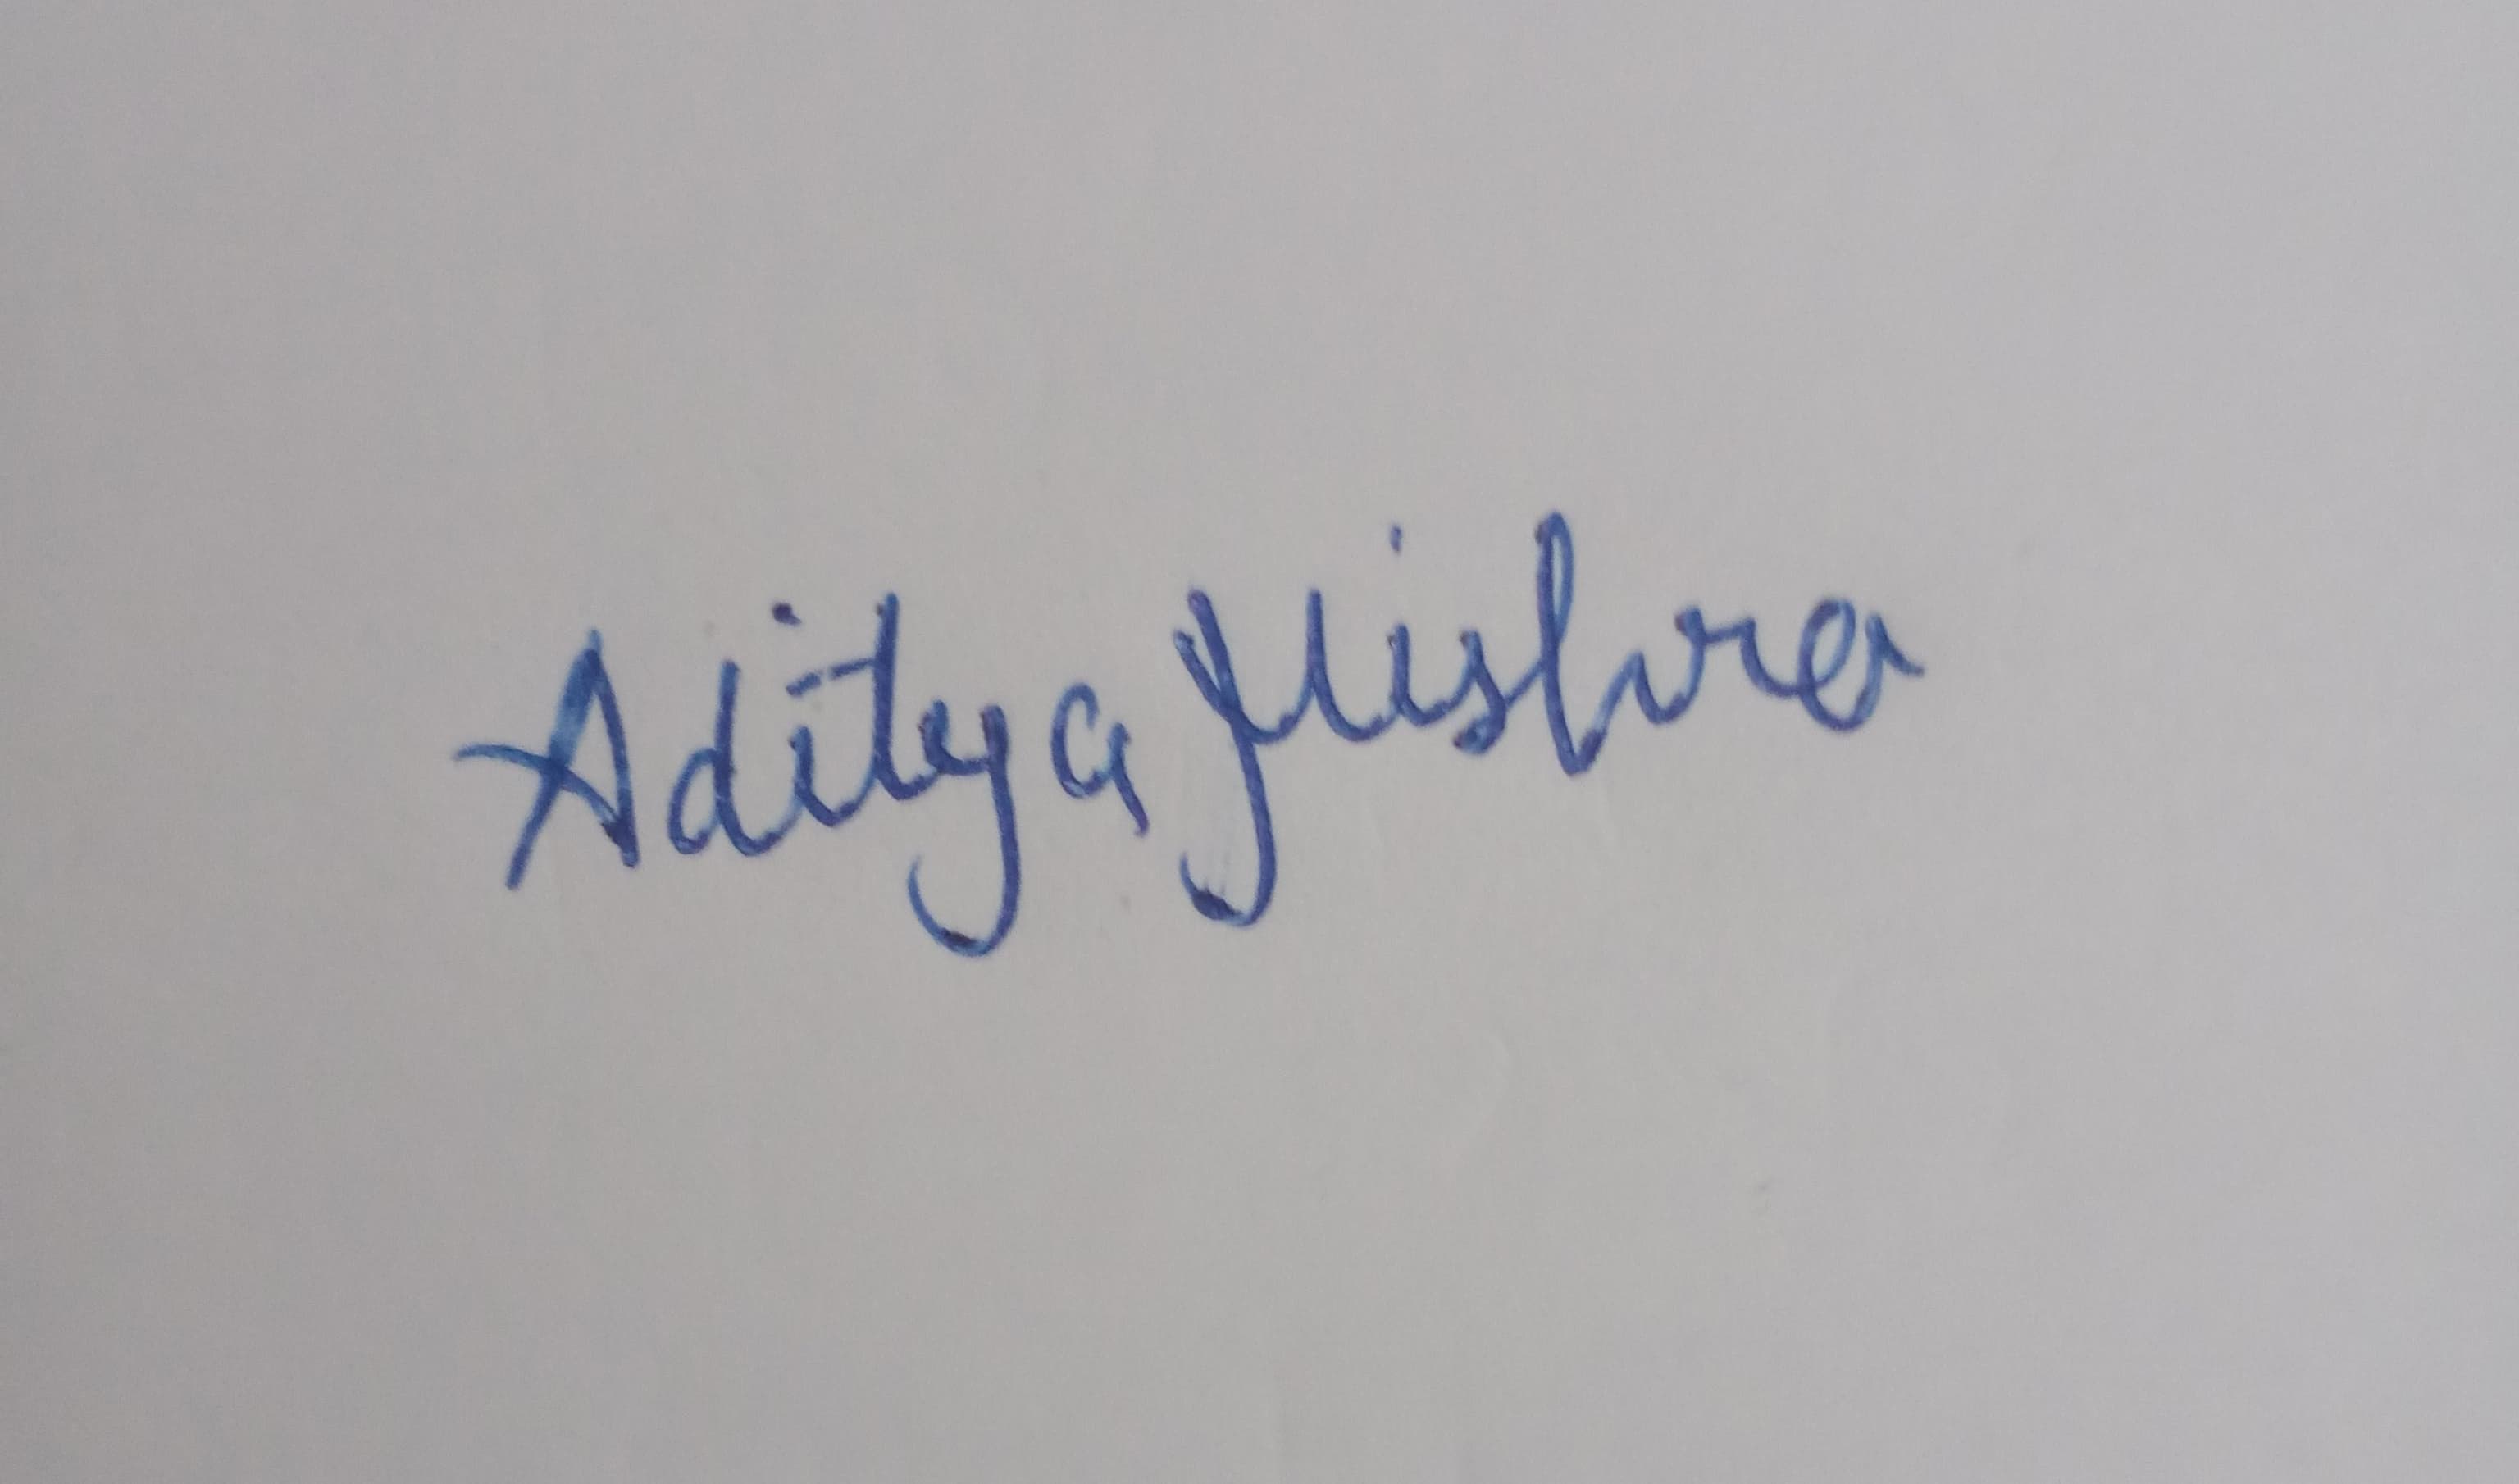 Aditya Mishra